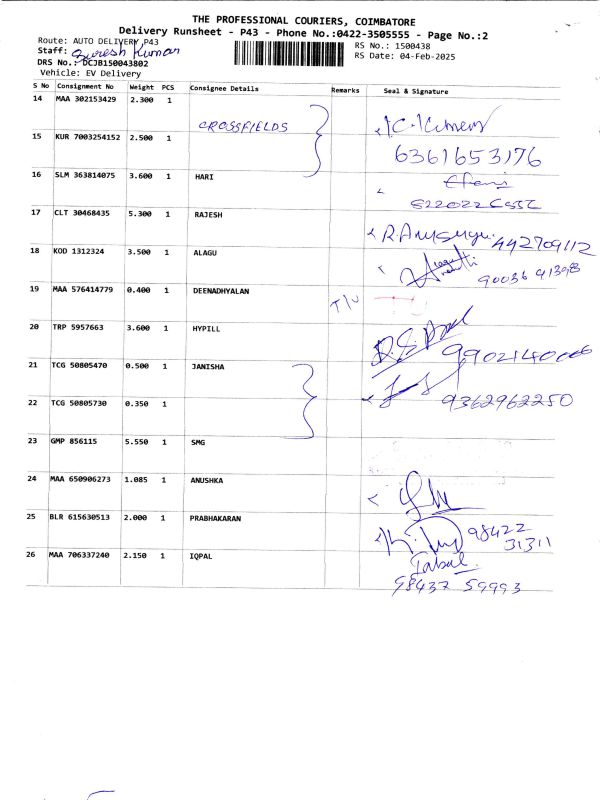 THE PROFESSIONAL COURIERS, COIMBATORE
Delivery Runsheet - P43 - Phone No.:0422-3505555 - Page No.:2
Route: AUTO DELIVERY,P43
RS No.: 1500438
Staff: Suresh Kumar
RS Date: 04-Feb-2025
DRS No.: DCJB150043802
Vehicle: EV Delivery
S No Consignment No Weight PCS Consignee Details Remarks Seal & Signature
14 MAA 302153429 2.300 1
CROSSFIELDS
15 KUR 7003254152 2.500 1
6361653176
16 SLM 363814075 3.600 1 HARI
17 CLT 30468435 5.300 1 RAJESH
442709112
18 KOD 1312324 3.500 1 ALAGU
90036 91398
19 MAA 576414779 0.400 1 DEENADHYALAN
20 TRP 5957663 3.600 1 HYPILL
21 TCG 50805470 0.500 1 JANISHA
22 TCG 50805730 0.350 1
9362962250
23 GMP 856115 5.550 1 SMG
24 MAA 650906273 1.085 1 ANUSHKA
25 BLR 615630513 2.000 1 PRABHAKARAN
98422
31311
26 MAA 706337240 2.150 1 IQPAL
98437 59993